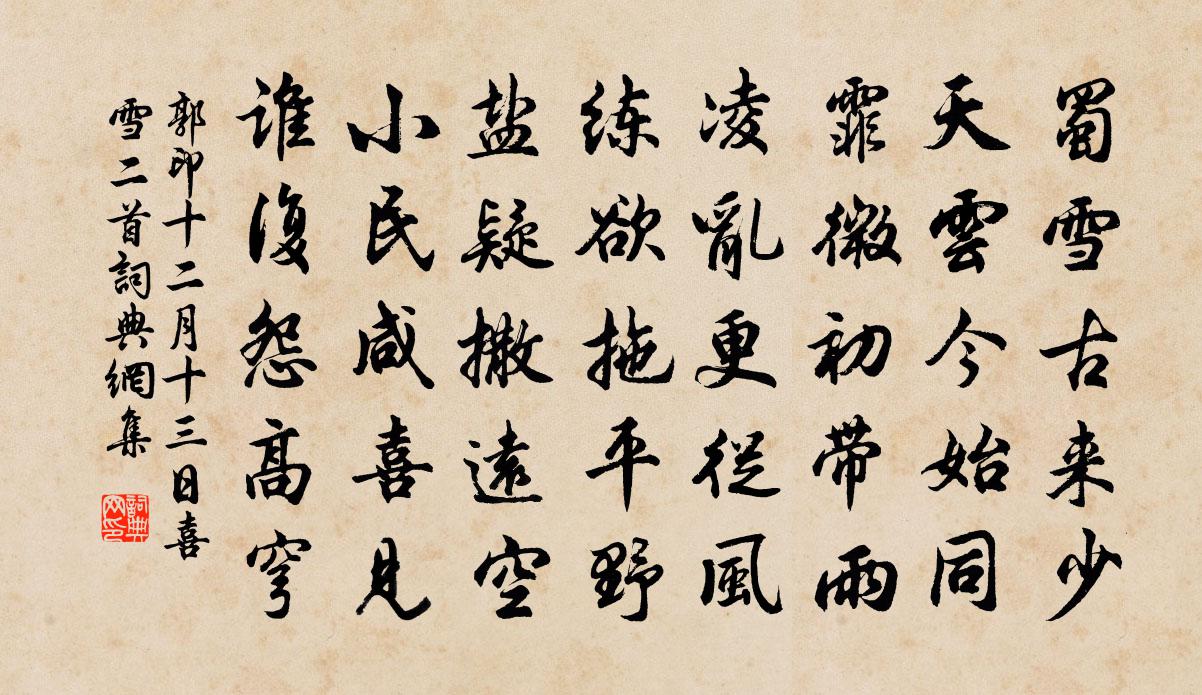 蜀雪古来少
天雲今始同
霏微初带雨
凌亂更従風
练欲拖平野
盐疑撒遠空
小民咸喜見
谁復怨高穹
郭印十二月十三日喜
雪二首詞典網集
詞典
网印